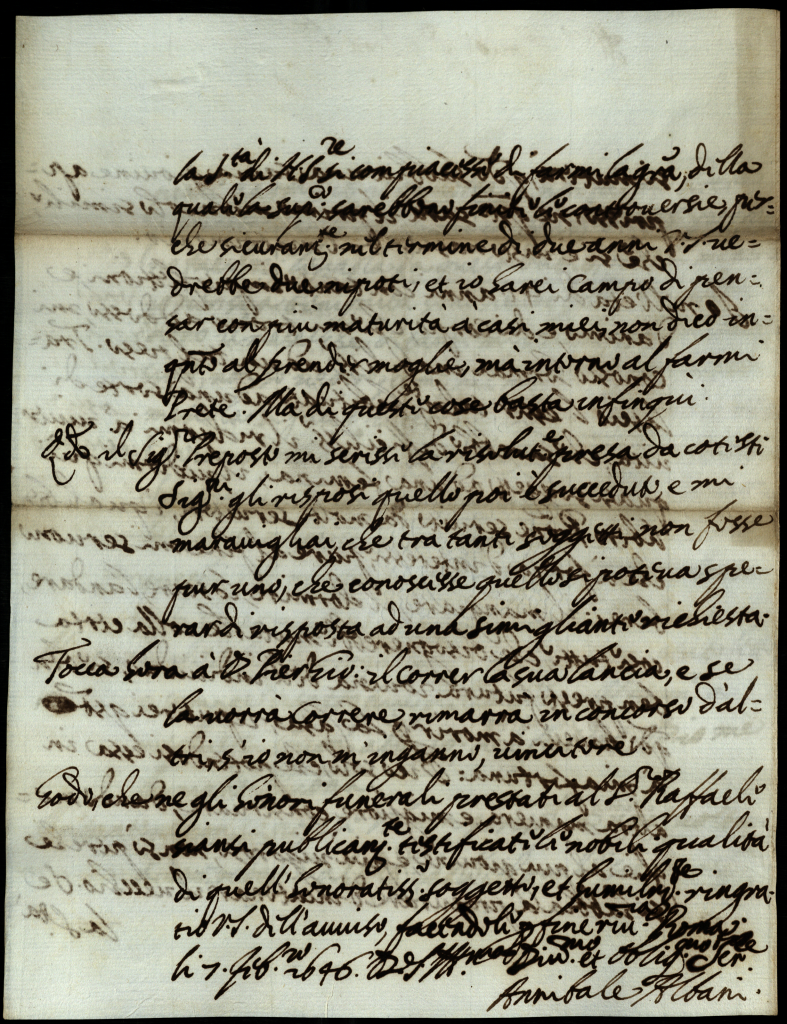 la S.tà di N.re si compiacesse di farmi la gra, della
quale la sup.co sarebbero finite le controversie, per=
che sicuram.te nel termine di due anni V.S. ve=
drebbe due nipoti, et io harei campo di pen=
sar con più maturità a casi miei, non dico in=
q.nto al prender moglie, mà intorno al farmi
Prete. Mà di queste cose basta infin qui.
Q.do il Sig.r Preposto mi scrisse la risolut.e presa da cotesti
Sig.ri gli risposi quello poi è succeduto, e mi
maravigliai che tra tanti soggetti non fosse
pur uno, che conoscesse quello si poteva spe=
rar di risposta ad una simigliante richiesta.
Tocca hora à D. Pier il correr la sua lancia, e se
la vorrà correre, rimarrà in concorso d'al=
tri, s'io non m'inganno, vincitore.
Godo, che ne gli honori funerali prestati al S.r Raffaele
siansi publicam.te testificate le nobili qualità
di quell' honoratiss.o soggetto, et humilm.te ringra=
tio V.S. dell' avviso, facendole p fine riu.za Roma
li 7. Feb.ro 1646. Di V.S. Div.mo et Oblig.mo Ser.re
Annibale Albani.